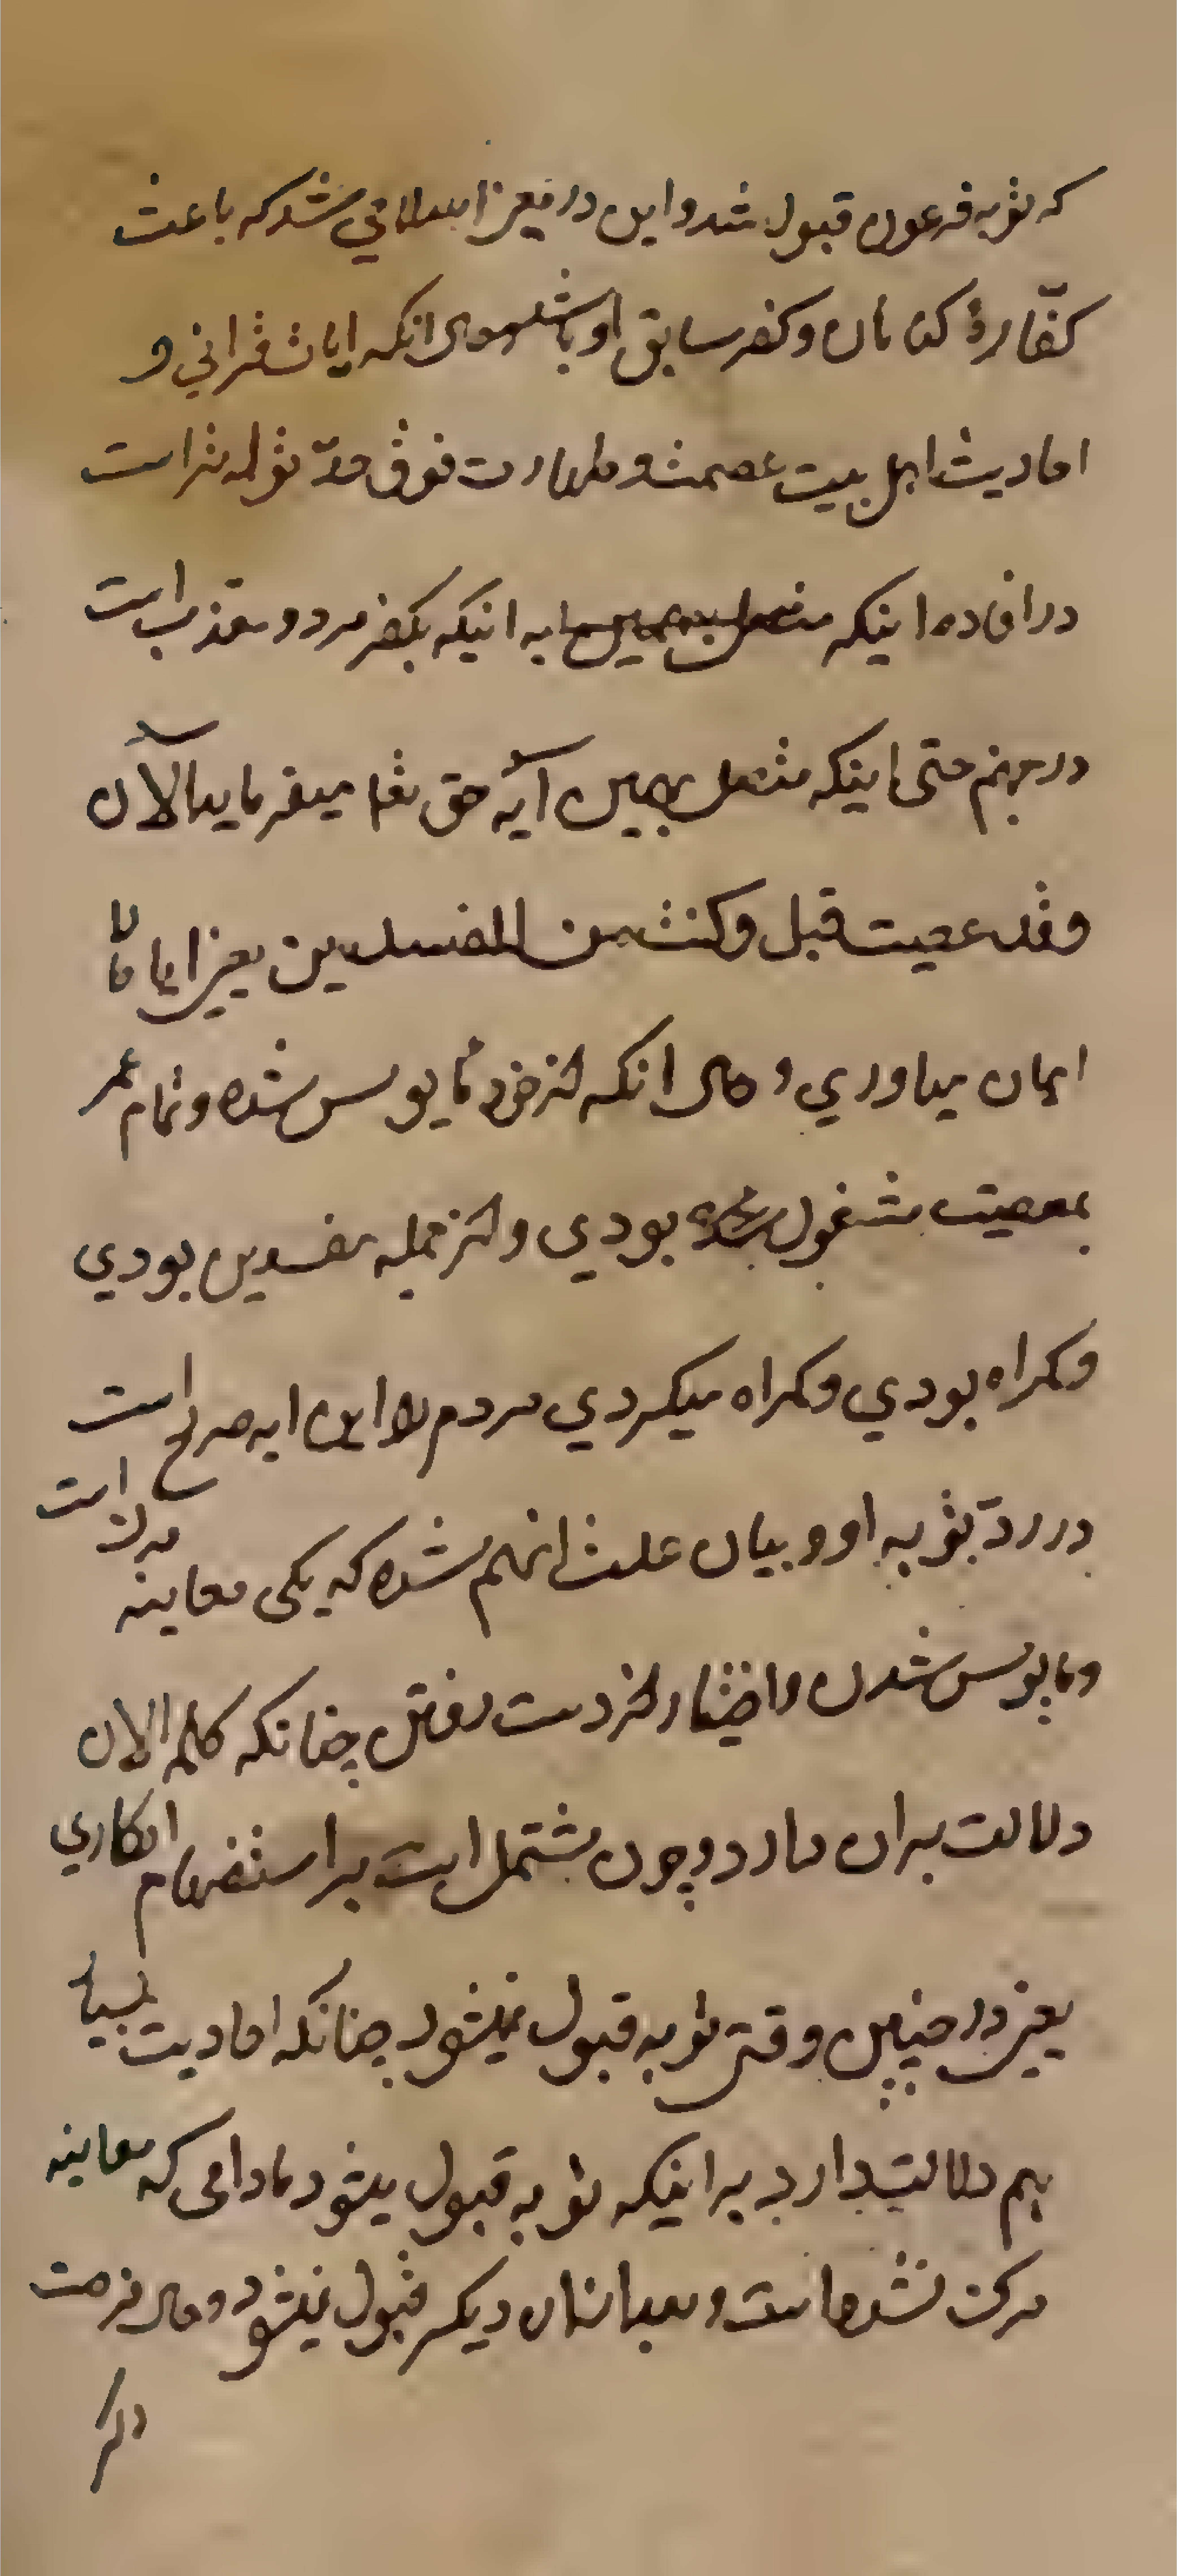 که توبه فرعون قبول شد و این در معنی اسلامی شد که باعث
کفّارهٔ کناهان و کفر سابق او باشد و حال انکه ایات قرانی و
احادیث اهل بیت عصمت و طهارت فوق حدّ تواتر است
در افاده اینکه به انیکه بکفر مرد و معذب است
در جهنم حتی اینکه متصل بهمین آیه حق تعا میفرماید الآن
وقد عصیت قبل وکنت من المفسدین یعنی ایا حالا
ایمان میاوری و حال انکه از خود مایوس شده و تمام عمر
بمعصیت مشغول بودی و از جمله مفسدین بودی
و کمراه بودی و کمراه میکردی مردم را این ایه صریح است
در ردّ توبه او و بیان علت انهم شده که یکی معاینه مرک است
و مایوس شدن و اختیار از دست رفتن چنانکه کلمه الان
دلالت بران دارد و چون مشتمل است بر استفهام انکاری
یعنی در چنین وقتی توبه قبول نمیشود چنانکه احادیث بسیار
هم دلالت دارد بر اینکه توبه قبول میشود مادامی که معاینه
مرک نشده است و بعد ازان دیکر قبول نمیشود و حال فرصت